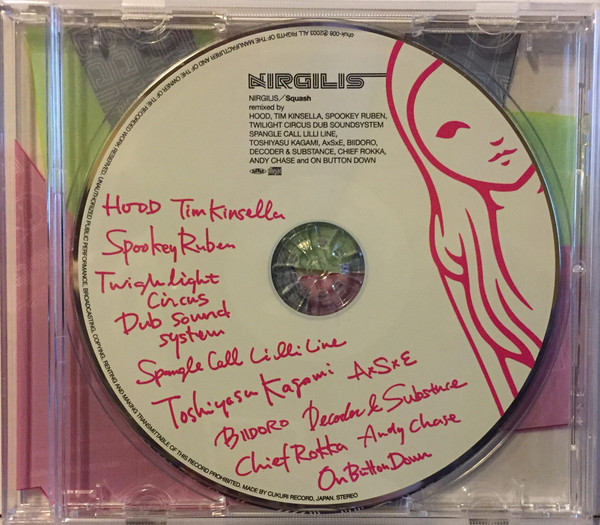 NIRGILIS
NIRGILIS/Squash
remixed by
HOOD, TIM KINSELLA, SPOOKEY RUBEN,
TWILIGHT CIRCUS DUB SOUNDSYSTEM
SPANGLE CALL LILLI LINE,
TOSHIYASU KAGAMI, AxSxE, BIIDORO,
DECODER & SUBSTANCE, CHIEF ROKKA,
ANDY CHASE and ON BUTTON DOWN
HOOD Tim Kinsella
Spookey Ruben
Twighlight
Circus
Dub Sound
system
Spangle Call Lilli Line
Toshiyasu Kagami AxSxE
BIIDORO Decoder & Substance
Chief Rokka Andy Chase
On Button Down
chuk-008 ℗2003 ALL RIGHTS OF THE MANUFACTURER AND OF THE OWNER OF THE RECORDED WORK RESERVED. UNAUTHORIZED PUBLIC PERFORMANCE, BROADCASTING, COPYING, RENTING AND MAKING TRANSMITTABLE OF THIS RECORD PROHIBITED. MADE BY CUKURI RECORD, JAPAN. STEREO